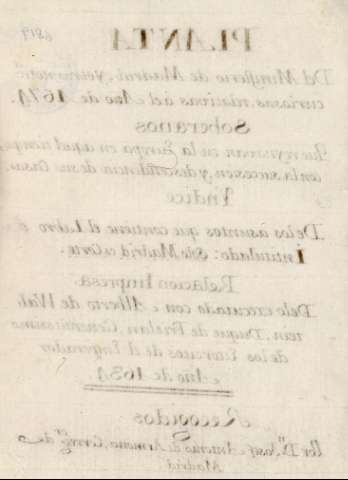 PLANTA
Del Ministerio de Madrid, y otras noticias
curiosas, relativas al Año de 1674.
Soberanos
Que reynavan en la Europa en aquel tiempo,
con la succesion, y descendencia de sus Casas
Yndice
De los asuntos que contiene el Libro
Intitulado: Solo Madrid es Corte.
Relacion Impresa.
Delo executado con Alberto de
Duque de Frislan Generalissimo
de los Exercitos de el Emperador
Año de 1634
Recogidos
Por Dn. Josef Antonio de Armona, Corregor. de
Madrid